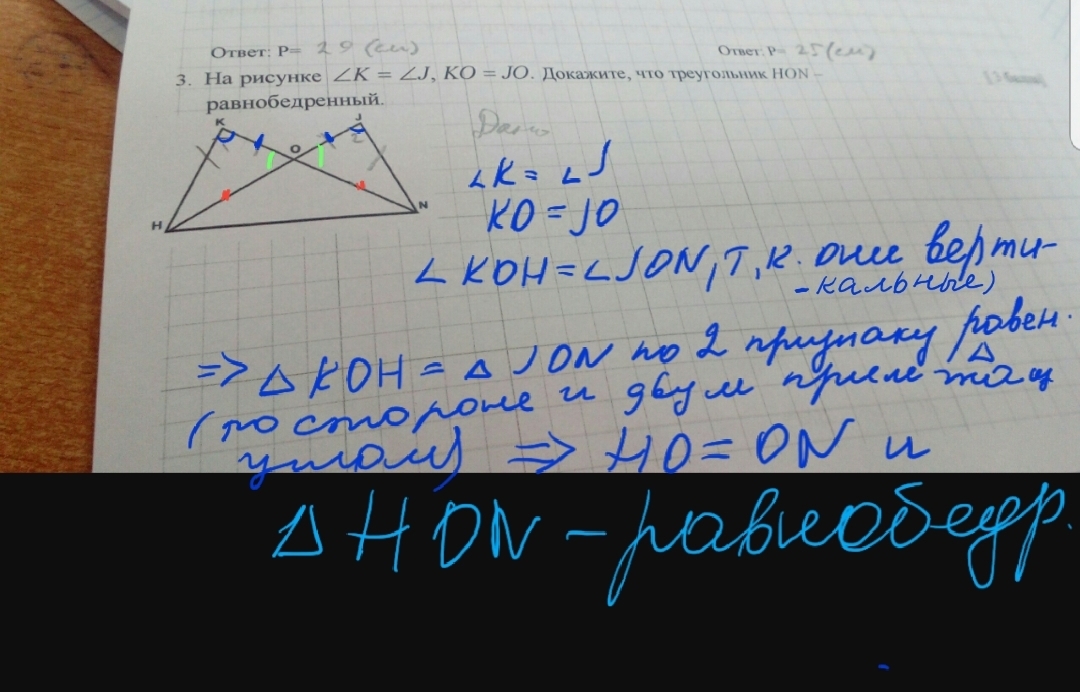 Ответ: P= 29 (см)
Ответ: P= 25 (см)
3. На рисунке ∠K = ∠J, KO = JO. Докажите, что треугольник HON –
равнобедренный.
K
J
O
2
H
N
Дано
∠K = ∠J
KO = JO
∠KOH = ∠JON, т.к. они верти-
-кальные)
=> Δ KOH = Δ JON по 2 признаку равен. Δ
(по стороне и двум прилежащ
углам) => HO = ON и
Δ HON – равнобедр.